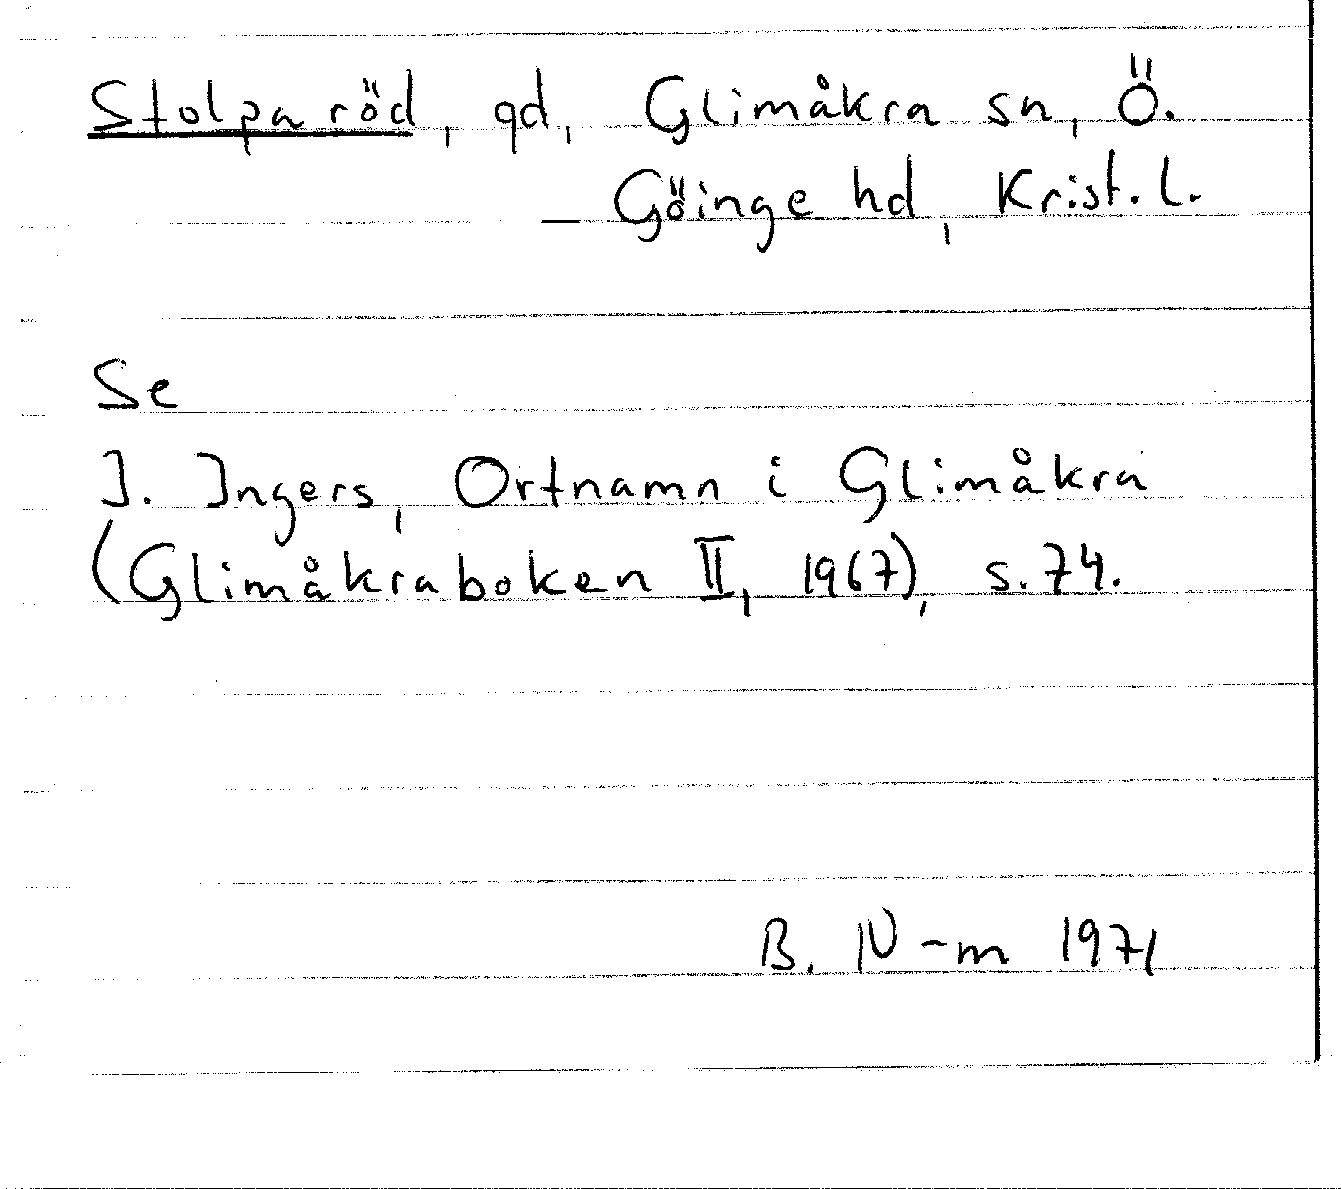 Stolparöd, gd, Glimåkra sn, Ö.
Göinge hd, Krist. l.
Se
I. Ingers, Ortnamn i Glimåkra
(Glimåkraboken II, 1967), s. 74.
B. N-m 1971